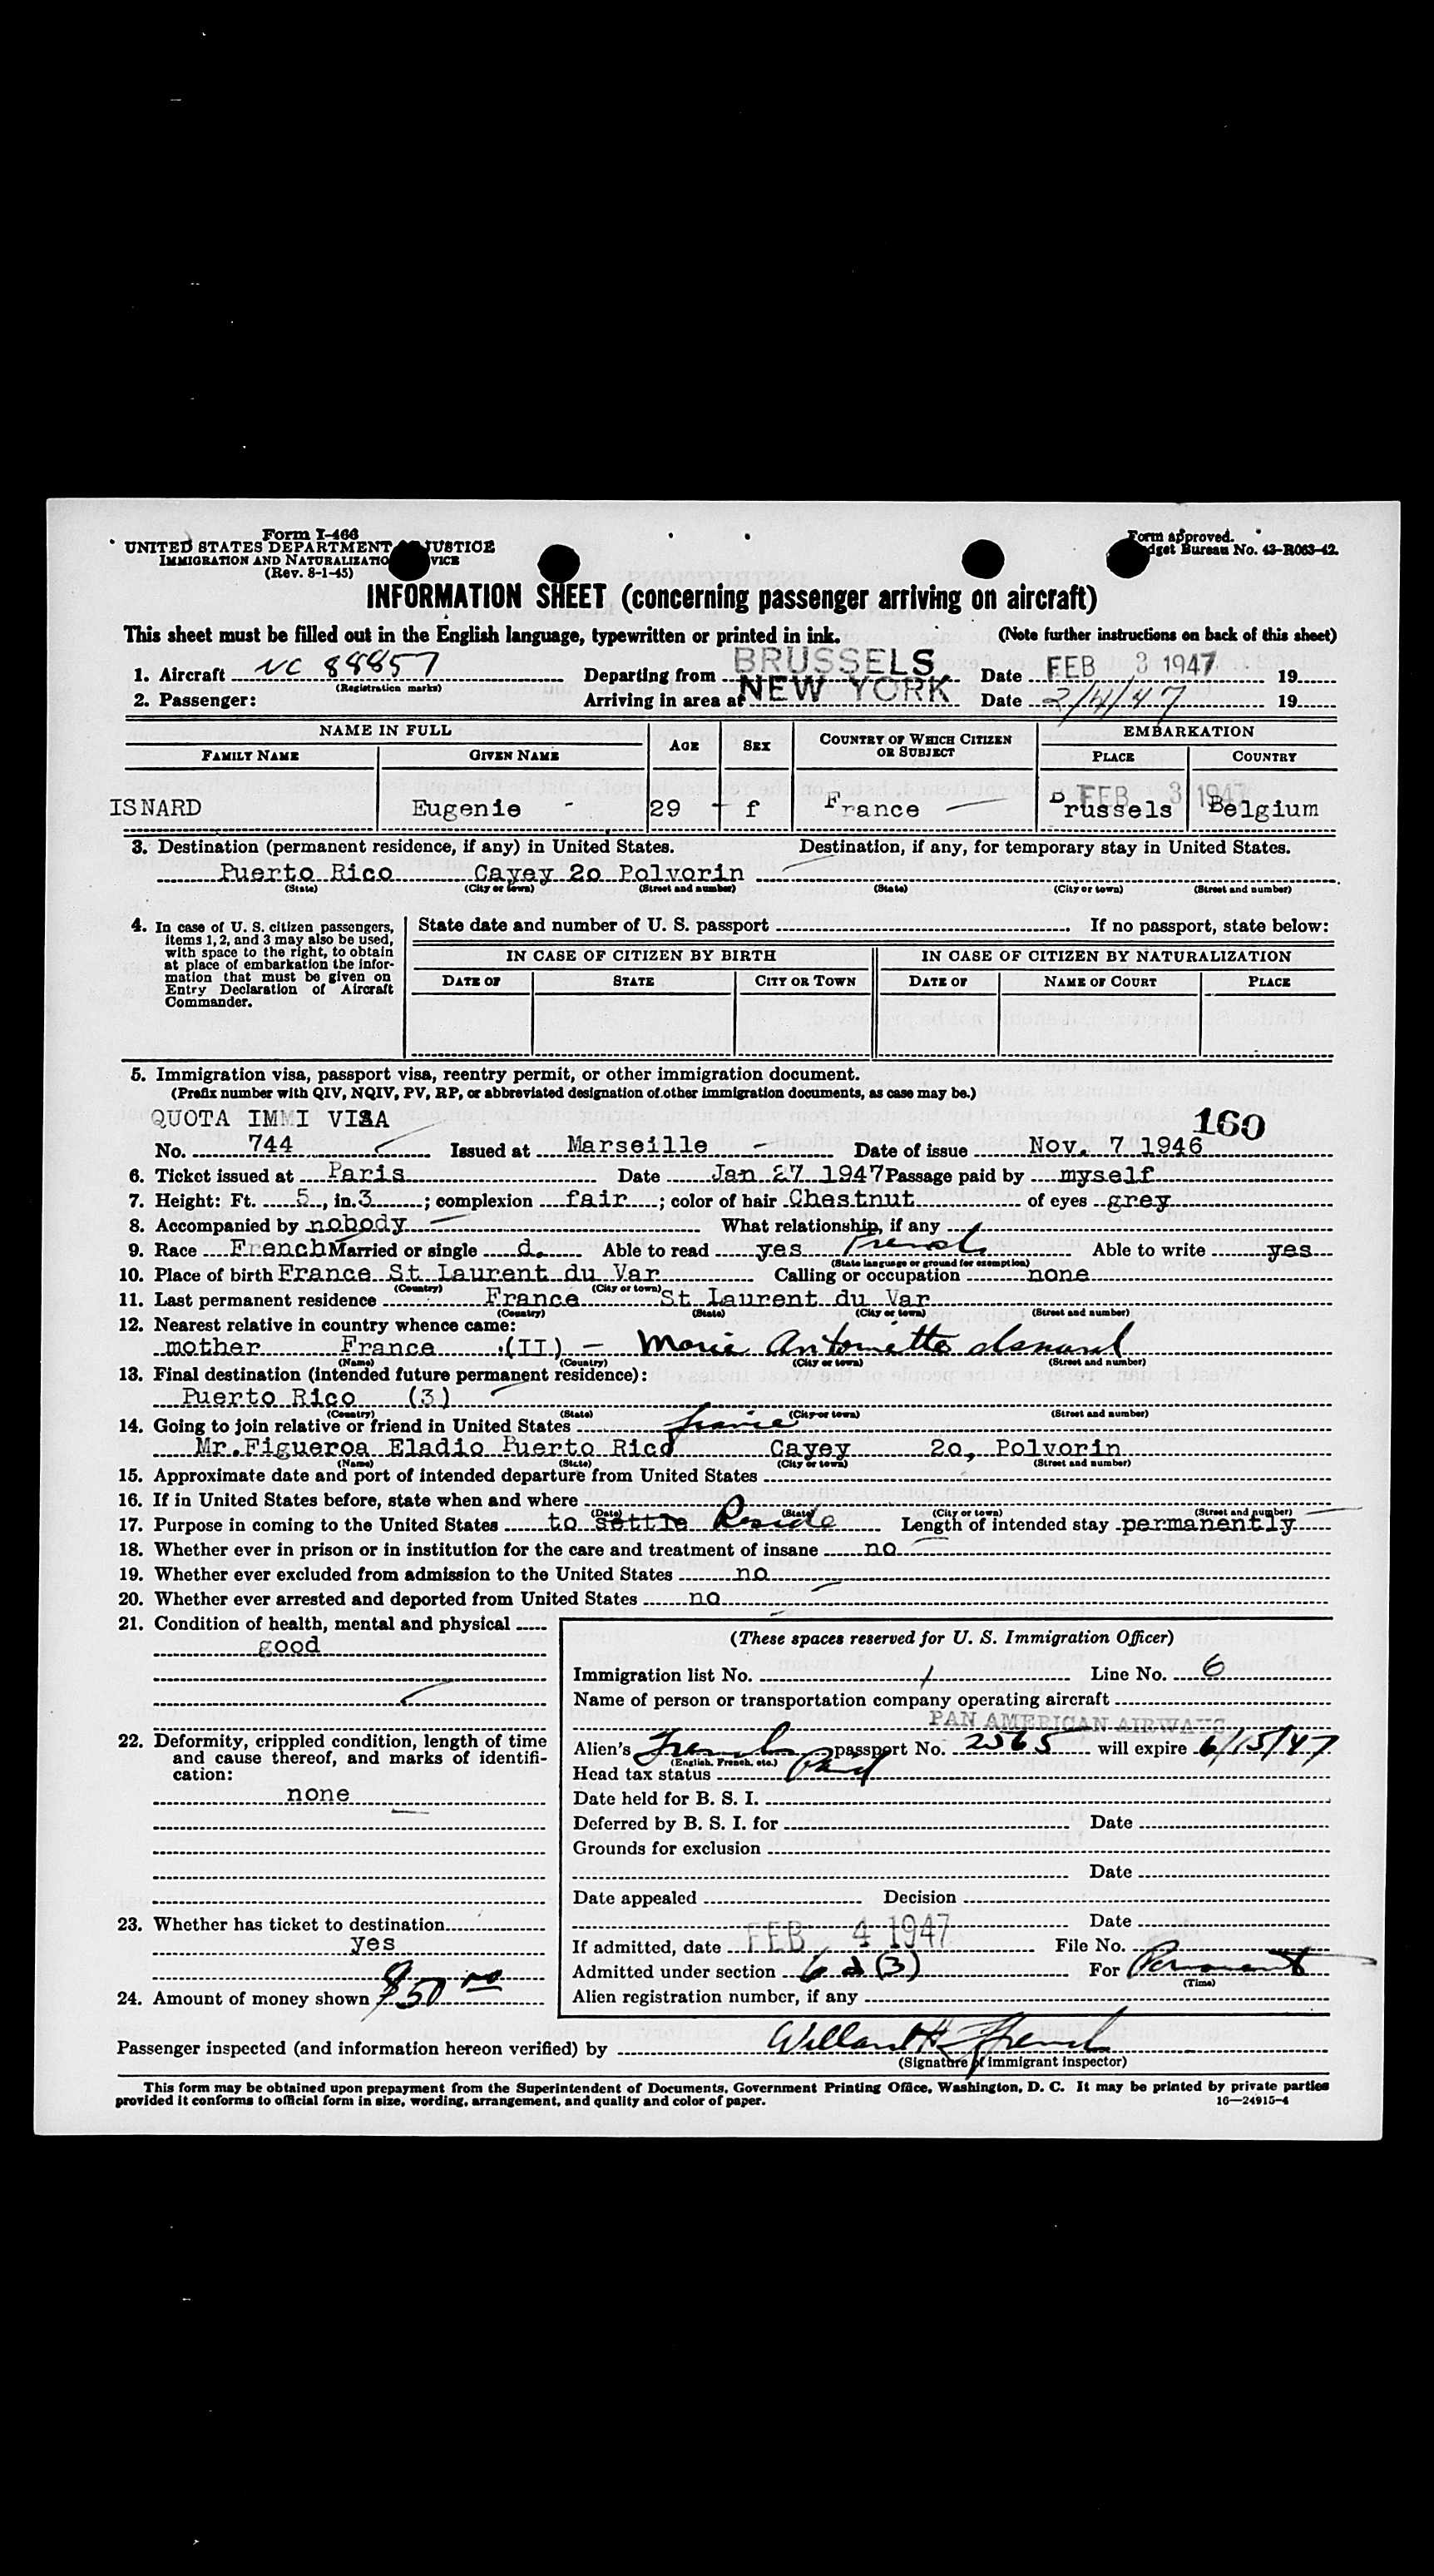 Form I-466
UNITED STATES DEPARTMENT OF JUSTICE
IMMIGRATION AND NATURALIZATIO VICE
(Rev. 8-1-45)
Form approved.
dget Bureau No. 43-R063-42.
INFORMATION SHEET (concerning passenger arriving on aircraft)
This sheet must be filled out in the English language, typewritten or printed in ink. (Note further instructions on back of this sheet)
1. Aircraft NC 88857 Departing from BRUSSELS Date FEB 3 1947 19
(Registration marks)
2. Passenger: Arriving in area at NEW YORK Date 2/4/47 19
NAME IN FULL AGE SEX COUNTRY OF WHICH CITIZEN OR SUBJECT EMBARKATION
FAMILY NAME GIVEN NAME PLACE COUNTRY
FEB 3 1947
ISNARD Eugenie - 29 - f France Brussels Belgium
3. Destination (permanent residence, if any) in United States. Destination, if any, for temporary stay in United States.
Puerto Rico Cayey 2o Polvorin
(State) (City or town) (Street and number) (State) (City or town) (Street and number)
4. In case of U. S. citizen passengers, items 1, 2, and 3 may also be used, with space to the right, to obtain at place of embarkation the information that must be given on Entry Declaration of Aircraft Commander.
State date and number of U. S. passport If no passport, state below:
IN CASE OF CITIZEN BY BIRTH IN CASE OF CITIZEN BY NATURALIZATION
DATE OF STATE CITY OR TOWN DATE OF NAME OF COURT PLACE
5. Immigration visa, passport visa, reentry permit, or other immigration document.
(Prefix number with QIV, NQIV, PV, RP, or abbreviated designation of other immigration documents, as case may be.)
QUOTA IMMI VISA 160
No. 744 Issued at Marseille - Date of issue Nov. 7 1946
6. Ticket issued at Paris Date Jan 27 1947 Passage paid by myself
7. Height: Ft. 5, in. 3; complexion fair; color of hair Chestnut of eyes grey
8. Accompanied by nobody What relationship, if any
9. Race French Married or single d. Able to read yes French Able to write yes
(State language or ground for exemption)
10. Place of birth France St Laurent du Var Calling or occupation none
(Country) (City or town)
11. Last permanent residence France St Laurent du Var
(Country) (State) (City or town) (Street and number)
12. Nearest relative in country whence came:
mother France (II) - Marie Antoinette Isnard
(Name) (Country) (City or town) (Street and number)
13. Final destination (intended future permanent residence):
Puerto Rico (3)
(Country) (State) (City or town) (Street and number)
14. Going to join relative or friend in United States
Mr. Figueroa Eladio Puerto Rico Cayey 2o, Polvorin
(Name) (State) (City or town) (Street and number)
15. Approximate date and port of intended departure from United States
16. If in United States before, state when and where
(Date) (State) (City or town) (Street and number)
17. Purpose in coming to the United States to settle Reside Length of intended stay permanently
18. Whether ever in prison or in institution for the care and treatment of insane no
19. Whether ever excluded from admission to the United States no
20. Whether ever arrested and deported from United States no
21. Condition of health, mental and physical
good
22. Deformity, crippled condition, length of time and cause thereof, and marks of identification:
none
23. Whether has ticket to destination
yes
24. Amount of money shown $50 00
(These spaces reserved for U. S. Immigration Officer)
Immigration list No. 1 Line No. 6
Name of person or transportation company operating aircraft
PAN AMERICAN AIRWAYS
Alien's French passport No. 2565 will expire 6/15/47
(English, French, etc.)
Head tax status Paid
Date held for B. S. I.
Deferred by B. S. I. for Date
Grounds for exclusion
Date
Date appealed Decision
Date
If admitted, date FEB 4 1947 File No.
Admitted under section 6 d (3) For Permanent
(Time)
Alien registration number, if any
Passenger inspected (and information hereon verified) by Willard H French
(Signature of immigrant inspector)
This form may be obtained upon prepayment from the Superintendent of Documents, Government Printing Office, Washington, D. C. It may be printed by private parties
provided it conforms to official form in size, wording, arrangement, and quality and color of paper. 16—24915-4